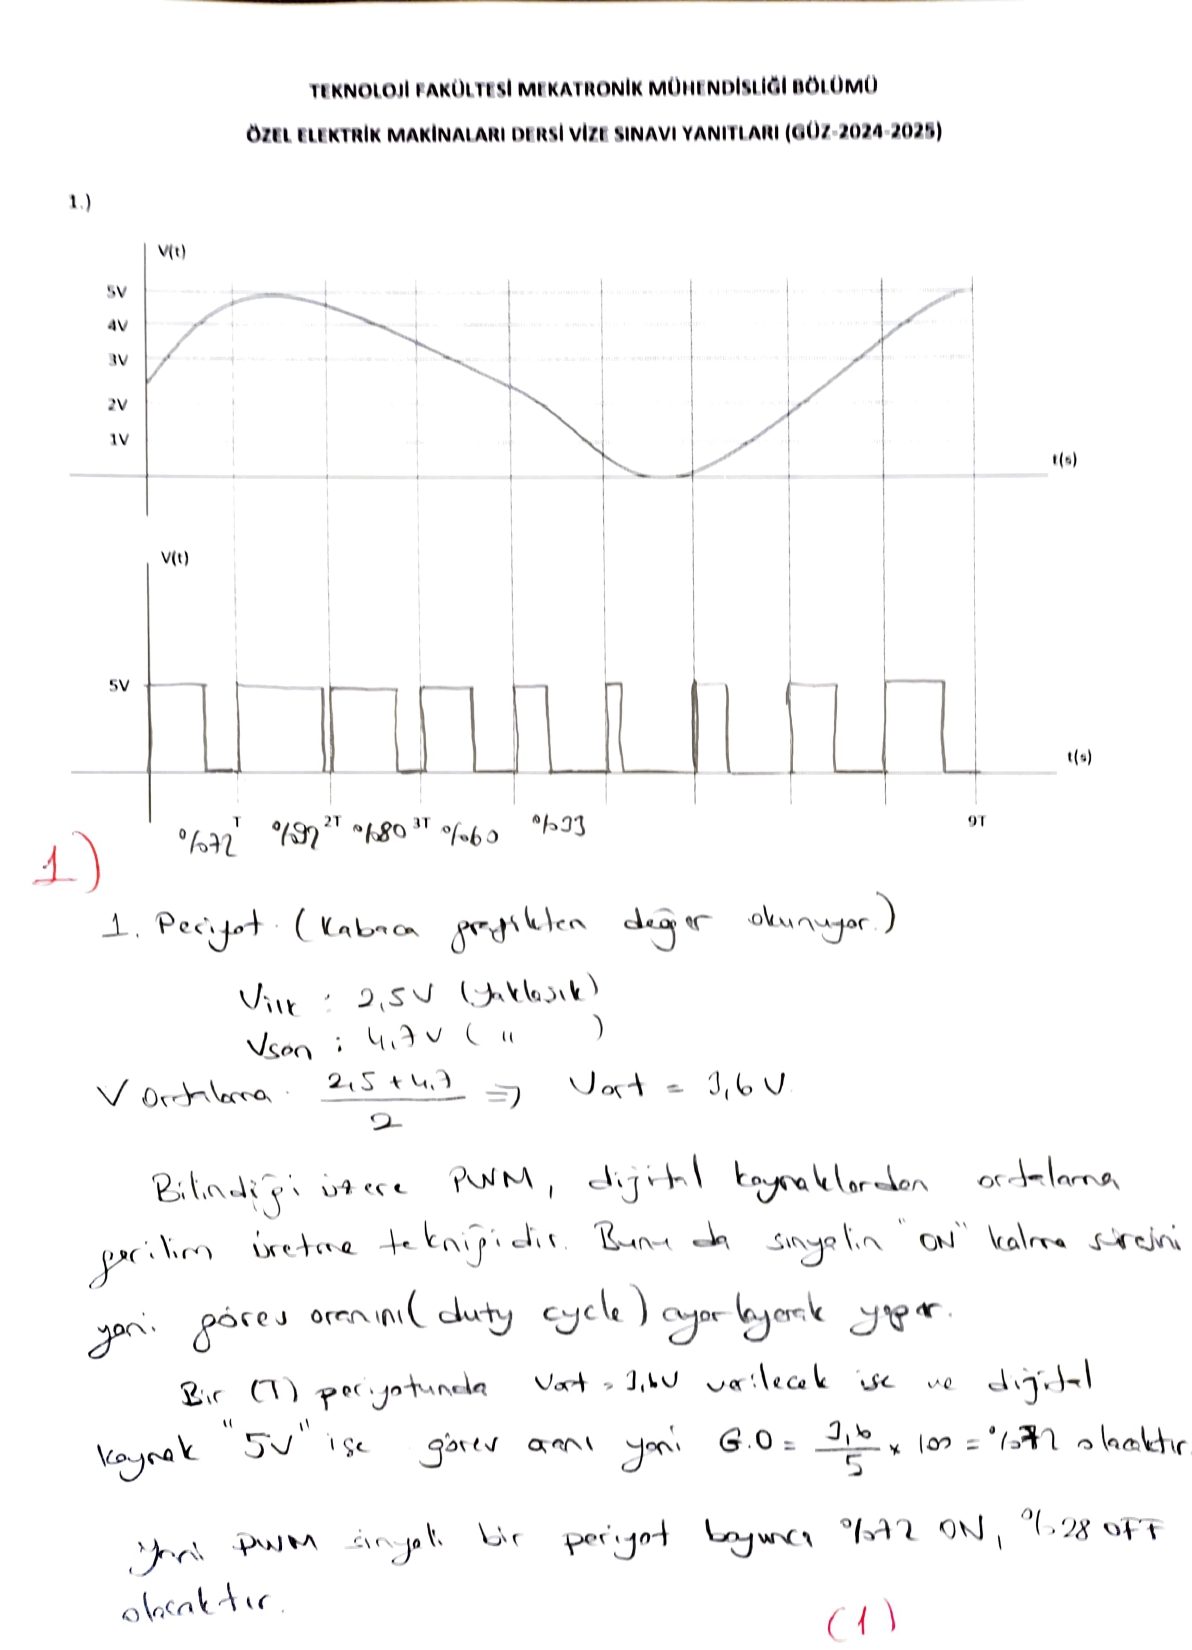 TEKNOLOJİ FAKÜLTESİ MEKATRONİK MÜHENDİSLİĞİ BÖLÜMÜ
ÖZEL ELEKTRİK MAKİNALARI DERSİ VİZE SINAVI YANITLARI (GÜZ-2024-2025)
1.)
V(t)
5V
4V
3V
2V
1V
t(s)
V(t)
5V
t(s)
%72 T %92 2T %80 3T %60 %33 9T
1)
1. Periyot. (Kabaca grafikten değer okunuyor.)
Vilk : 2,5V (yaklaşık)
Vson : 4,7V ( " )
V Ortalama. 2,5+4,7 / 2 => Vort = 3,6 V.
Bilindiği üzere PWM, dijital kaynaklardan ortalama
gerilim üretme tekniğidir. Bunu da sinyalin "ON" kalma süresini
yani görev oranını (duty cycle) ayarlayarak yapar.
Bir (T) periyotunda Vort = 3,6V verilecek ise ve dijital
kaynak "5V" ise görev oranı yani G.O = 3,6 / 5 x 100 = %72 olacaktır.
Yani PWM sinyali bir periyot boyunca %72 ON, %28 OFF
olacaktır.
(1)